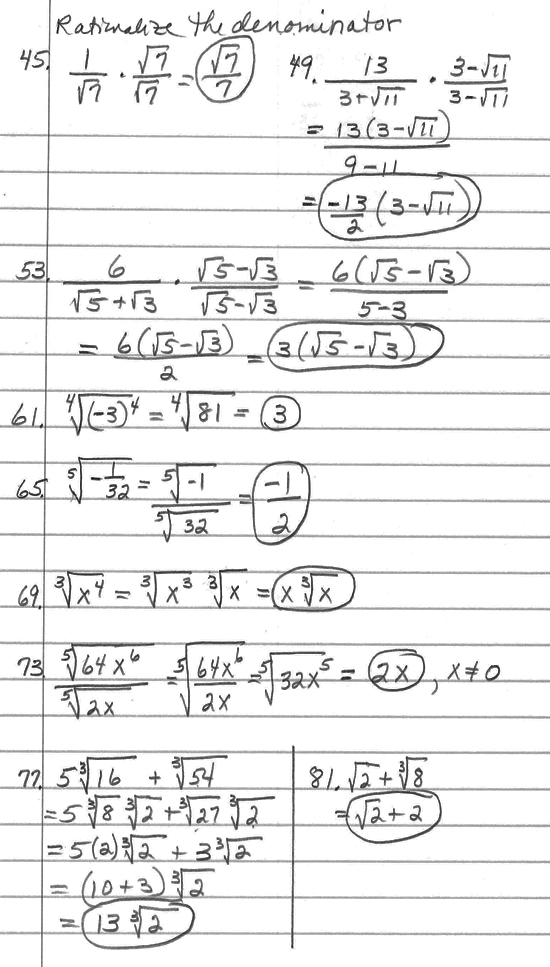 Rationalize the denominator
45. 1/√7 · √7/√7 = √7/7
49. 13/(3+√11) · (3-√11)/(3-√11)
= 13(3-√11)/(9-11)
= -13/2 (3-√11)
53. 6/(√5+√3) · (√5-√3)/(√5-√3) = 6(√5-√3)/(5-3)
= 6(√5-√3)/2 = 3(√5-√3)
61. ∜((-3)⁴) = ∜81 = 3
65. ⁵√(-1/32) = ⁵√-1/⁵√32 = -1/2
69. ∛(x⁴) = ∛(x³) ∛x = x∛x
73. ⁵√(64x⁶)/⁵√(2x) = ⁵√(64x⁶/2x) = ⁵√(32x⁵) = 2x, x≠0
77. 5∛16 + ∛54
= 5∛8 ∛2 + ∛27 ∛2
= 5(2)∛2 + 3∛2
= (10+3)∛2
= 13∛2
81. √2 + ∛8
= √2 + 2